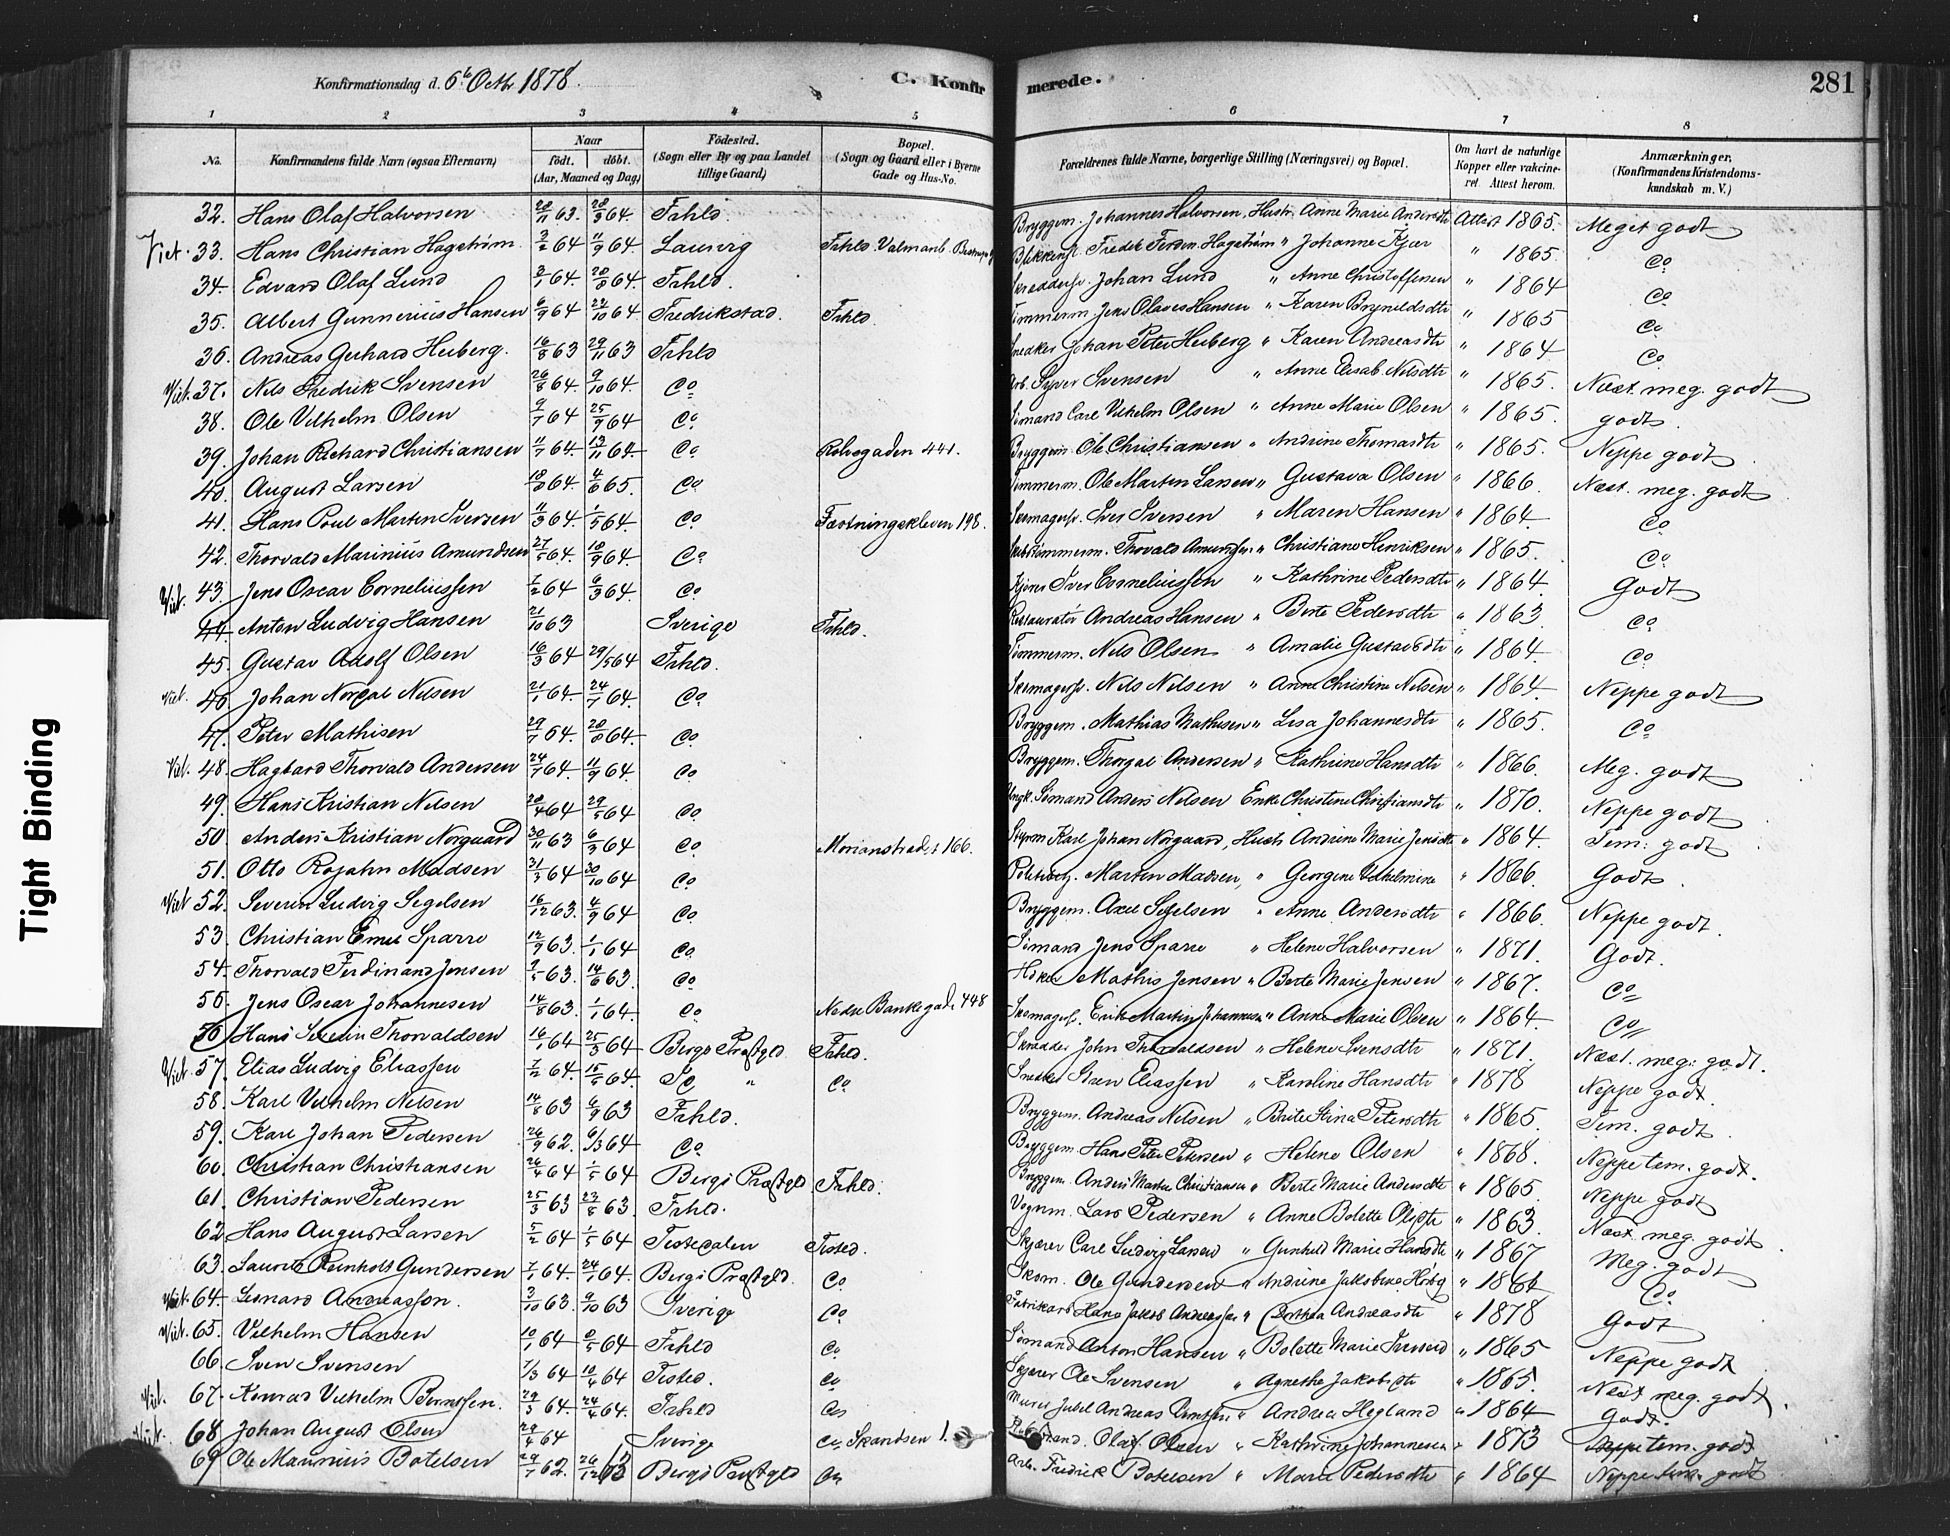 Konfirmationsdag d. 6te Octbr 1878. C. Konfirmerede. 281
1 2 3 4 5 6 7 8
No. Konfirmandens fulde Navn (ogsaa Efternavn) Naar født. døbt. (Aar, Maaned og Dag) Fødested. (Sogn eller By og paa Landet tillige Gaard) Bopæl. (Sogn og Gaard eller i Byerne Gade og Hus-No. Forældrenes fulde Navne, borgerlige Stilling (Næringsvei) og Bopæl. Om havt de naturlige Kopper eller vakcineret. Attest herom. Anmærkninger, (Konfirmandens Kristendomskundskab m. V.)
32. Hans Olaf Halvorsen 28/11 63. 28/3 64. Frhld. Bryggem. Johannes Halvorsen, Hustr. Anne Marie Andersdtr Attest 1865. Meget godt
Viet. 33. Hans Christian Hagstrøm 64 11/9 64. Laurvig Frhld. Blikkensl. Fredrk Ferdin. Hagstrøm " Johanne Kjær " 1865. Do
34. Edvard Olaf Lund 3/1 64. 28/8 64. Frhld. Johan Lund " Anne Christoffersen " 1864 Do
35. Albert Gunnerius Hansen 6/9 64 64 Fredrikstad. Frhld. Tømmerm Jens Olaves Hansen " Karen Brynildsdtr " 1865 Do
36. Andreas Gerhard Heiberg. 16/8 63 29/11 63 Frhld Snedker Johan Peter Heiberg " Karen Andreasdtr " 1864 Do
Viet. 37. Nils Fredrik Svensen 26/8 64. 9/10 64. Do Arb. Syver Svensen " Anne Elisab. Nilsdtr " 1865. Næst. meg. godt
38. Ole Vilhelm Olsen 9/7 64 25/9 64. Do Sømand Carl Vilhelm Olsen " Anne Marie Olsen " 1865. godt
39. Johan Richard Christiansen 11/7 64 13/11 64 Do Rolvsgaden 441. Bryggem Ole Christiansen " Andrine Thomasdtr " 1865. Neppe godt
40. August Larsen 64. 4/6 65. Do Tømmerm. Ole Martin Larsen " Gustava Olsen " 1866. Næst. meg. godt
41. Hans Poul Martin Iversen 11/3 64. 1/5 64. Do Fæstningskleven 198. Skomagersv. Iver Iversen " Maren Hansen " 1864 Do
42. Thorvald Marinius Amundsen 27/5 64. 18/9 64. Do Skibstømmerm. Thovald Amundsen " Christiane Henriksen " 1865. Do
Viet. 43. Jens Oscar Corneliussen 1/2 64 6/3 64. Do Iver Corneliussen " Kathrine Pedersdtr " 1864. Godt
44. Anton Ludvig Hansen 21/10 63 Sverige Frhld. Restauratør Andreas Hansen " Berte Pedersdtr " 1863 Do
45. Gustav Adolf Olsen 16/3 64 29/5 64 Frhld. Tømmerm. Nils Olsen " Amalie Gustavsdtr " 1864. Do
Viet. 46. Johan Norval Nilsen 21/1 64. 24/7 64. Do Skomagersv. Nils Nilsen " Anne Christine Nilsen " 1864. Neppe godt
47. Peter Mathisen 29/7 64. 28/8 64. Do Bryggem. Mathias Mathisen " Lisa Johannesdtr " 1865. Do
Viet. 48. Hagbard Thorvald Andersen 24/7 64. 11/9 64. Do Bryggem. Thorval Andersen " Kathrine Hansdtr " 1866. Meg. godt
49. Hans Kristian Nilsen 28/4 64 29/5 64 Do Ungk. Sømand Anders Nilsen Enke Christine Christiansdtr " 1870. Neppe godt
50. Anders Kristian Nørgaard 30/11 63 6/3 64 Do Morianstrædet 166. Styrm Karl Johan Nørgaard, Hustr. Andrine Marie Jensdtr " 1864. Tem. godt
51. Otto Rojahn Madsen 31/3 64 30/10 64 Do Politibetj. Martin Madsen, " Georgine Vilhelmine " 1866. Godt.
Viet 52. Severin Ludvig Segelsen 16/12 63. 4/9 64 Do Bryggem. Axel Segelsen " Anne Andersdtr " 1866. Neppe godt.
53. Christian Emil Sparre 12/9 63. 1/1 64 Do Sømand Jens Sparre " Helene Halvorsen " 1871. Godt.
54. Thorvald Ferdinand Jensen 9/5 63. 14/6 63. Do Høker Mathis Jensen " Berte Marie Jensen " 1867. Do
55. Jens Oscar Johannesen 14/8 63. 1/1 64. Do Nedre Bankegade 448 Skomagersv. Erik Martin Johannesen " Anne Marie Olsen " 1864. Do
56 Hans Severin Thorvaldsen 16/1 64 25/3 64 Bergs Præstgld Frhld. Skrædder John Thorvaldsen " Helene Svensdtr " 1871. Næst. meg. godt.
Viet. 57. Elias Ludvig Eliassen 7/2 64. 15/5 64. Do " Do Snedker Sven Eliassen " Karoline Hansdtr " 1878 Neppe godt.
58. Karl Vilhelm Nilsen 14/8 63 6/9 63 Frhld. Bryggem. Andreas Nilsen " Brite Stina Petersdtr " 1865. Tem. godt.
59. Karl Johan Pedersen 26/9 62. 6/3 64 Do Bryggem. Hans Peter Petersen " Helene Olsen " 1868. Neppe tem. godt.
60. Christian Christiansen 26/4 64 1/5 64 Bergs Præstgld Frhld. Bryggem. Anders Martin Christiansen " Berte Marie Andersdtr " 1865. Neppe godt
61. Christian Pedersen 25/3 63 23/8 63. Frhld. Vognm. Lars Pedersen " Anne Bolette Olsdtr " 1863. Næst. meg. godt
62. Hans August Larsen 5/2 64 1/5 64 Tistedalen Tisted. Skjærer Carl Ludvig Larsen " Gunhild Marie Hansdtr " 1867 Meg. godt
63. Laurits Reinholt Gundersen 7/1 64. 24/1 64. Bergs Præstgld. Do Skom. Ole Gundersen " Andrine Jakobine " 1864 Do
Viet. 64. Leonard Andreassen. 3/10 63. 9/10 63 Sverige Do Fabrikarb. Hans Jakob Andreassen " Dorthea Andreasdtr " 1878 Godt
Viet. 65. Vilhelm Hansen 10/1 64 8/5 64 Frhld Do Sømand Anton Hansen " Bolette Marie " 1865 Neppe godt
66. Sven Svensen 7/3 64 10/4 64 Tisted. Do Skjærer Ole Svensen " Agnethe Jakobsdtr " 1865. Næst meg. godt
Viet. 67. Konrad Vilhelm Berntsen. 29/3 64. 24/4 64. Frhld Do Murer Andreas Berntsen " Andrea Hegland " 1864 Godt.
Viet. 68. Johan August Olsen 29/4 64 Sverige Do Skandsen 1. Olaf Olsen " Kathrine Johannesen " 1873 tem. godt
69 Ole Maurinius Botelsen 29/7 62. 26/12 Bergs Præstgld Do Arb. Fredrik Botelsen " Marie Pedersdtr " 1864 Neppe tem. godt
Tight Binding